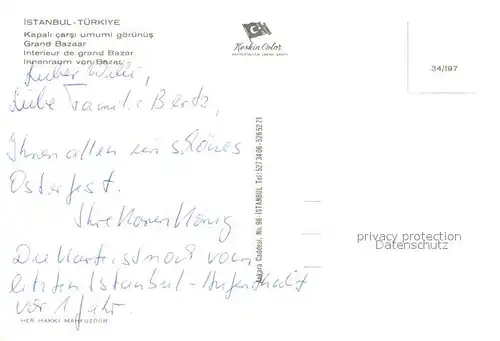 İSTANBUL-TÜRKİYE
Kapalı çarşı umumi görünüş
Grand Bazaar
Interieur de grand Bazar
Innenraum von Bazar
Lieber Willi,
Liebe Familie Bertz,
Ihnen allen ein schönes
Osterfest.
Ihre König
Die Karte ist noch vom
letzten Istanbul-Aufenthalt
vor 1 Jahr.
HER HAKKI MAHFUZDUR
Keskin Color
Ankara Caddesi, No. 98 - İSTANBUL Tel: 5273406-5265271
34/197
privacy protection
Datenschutz